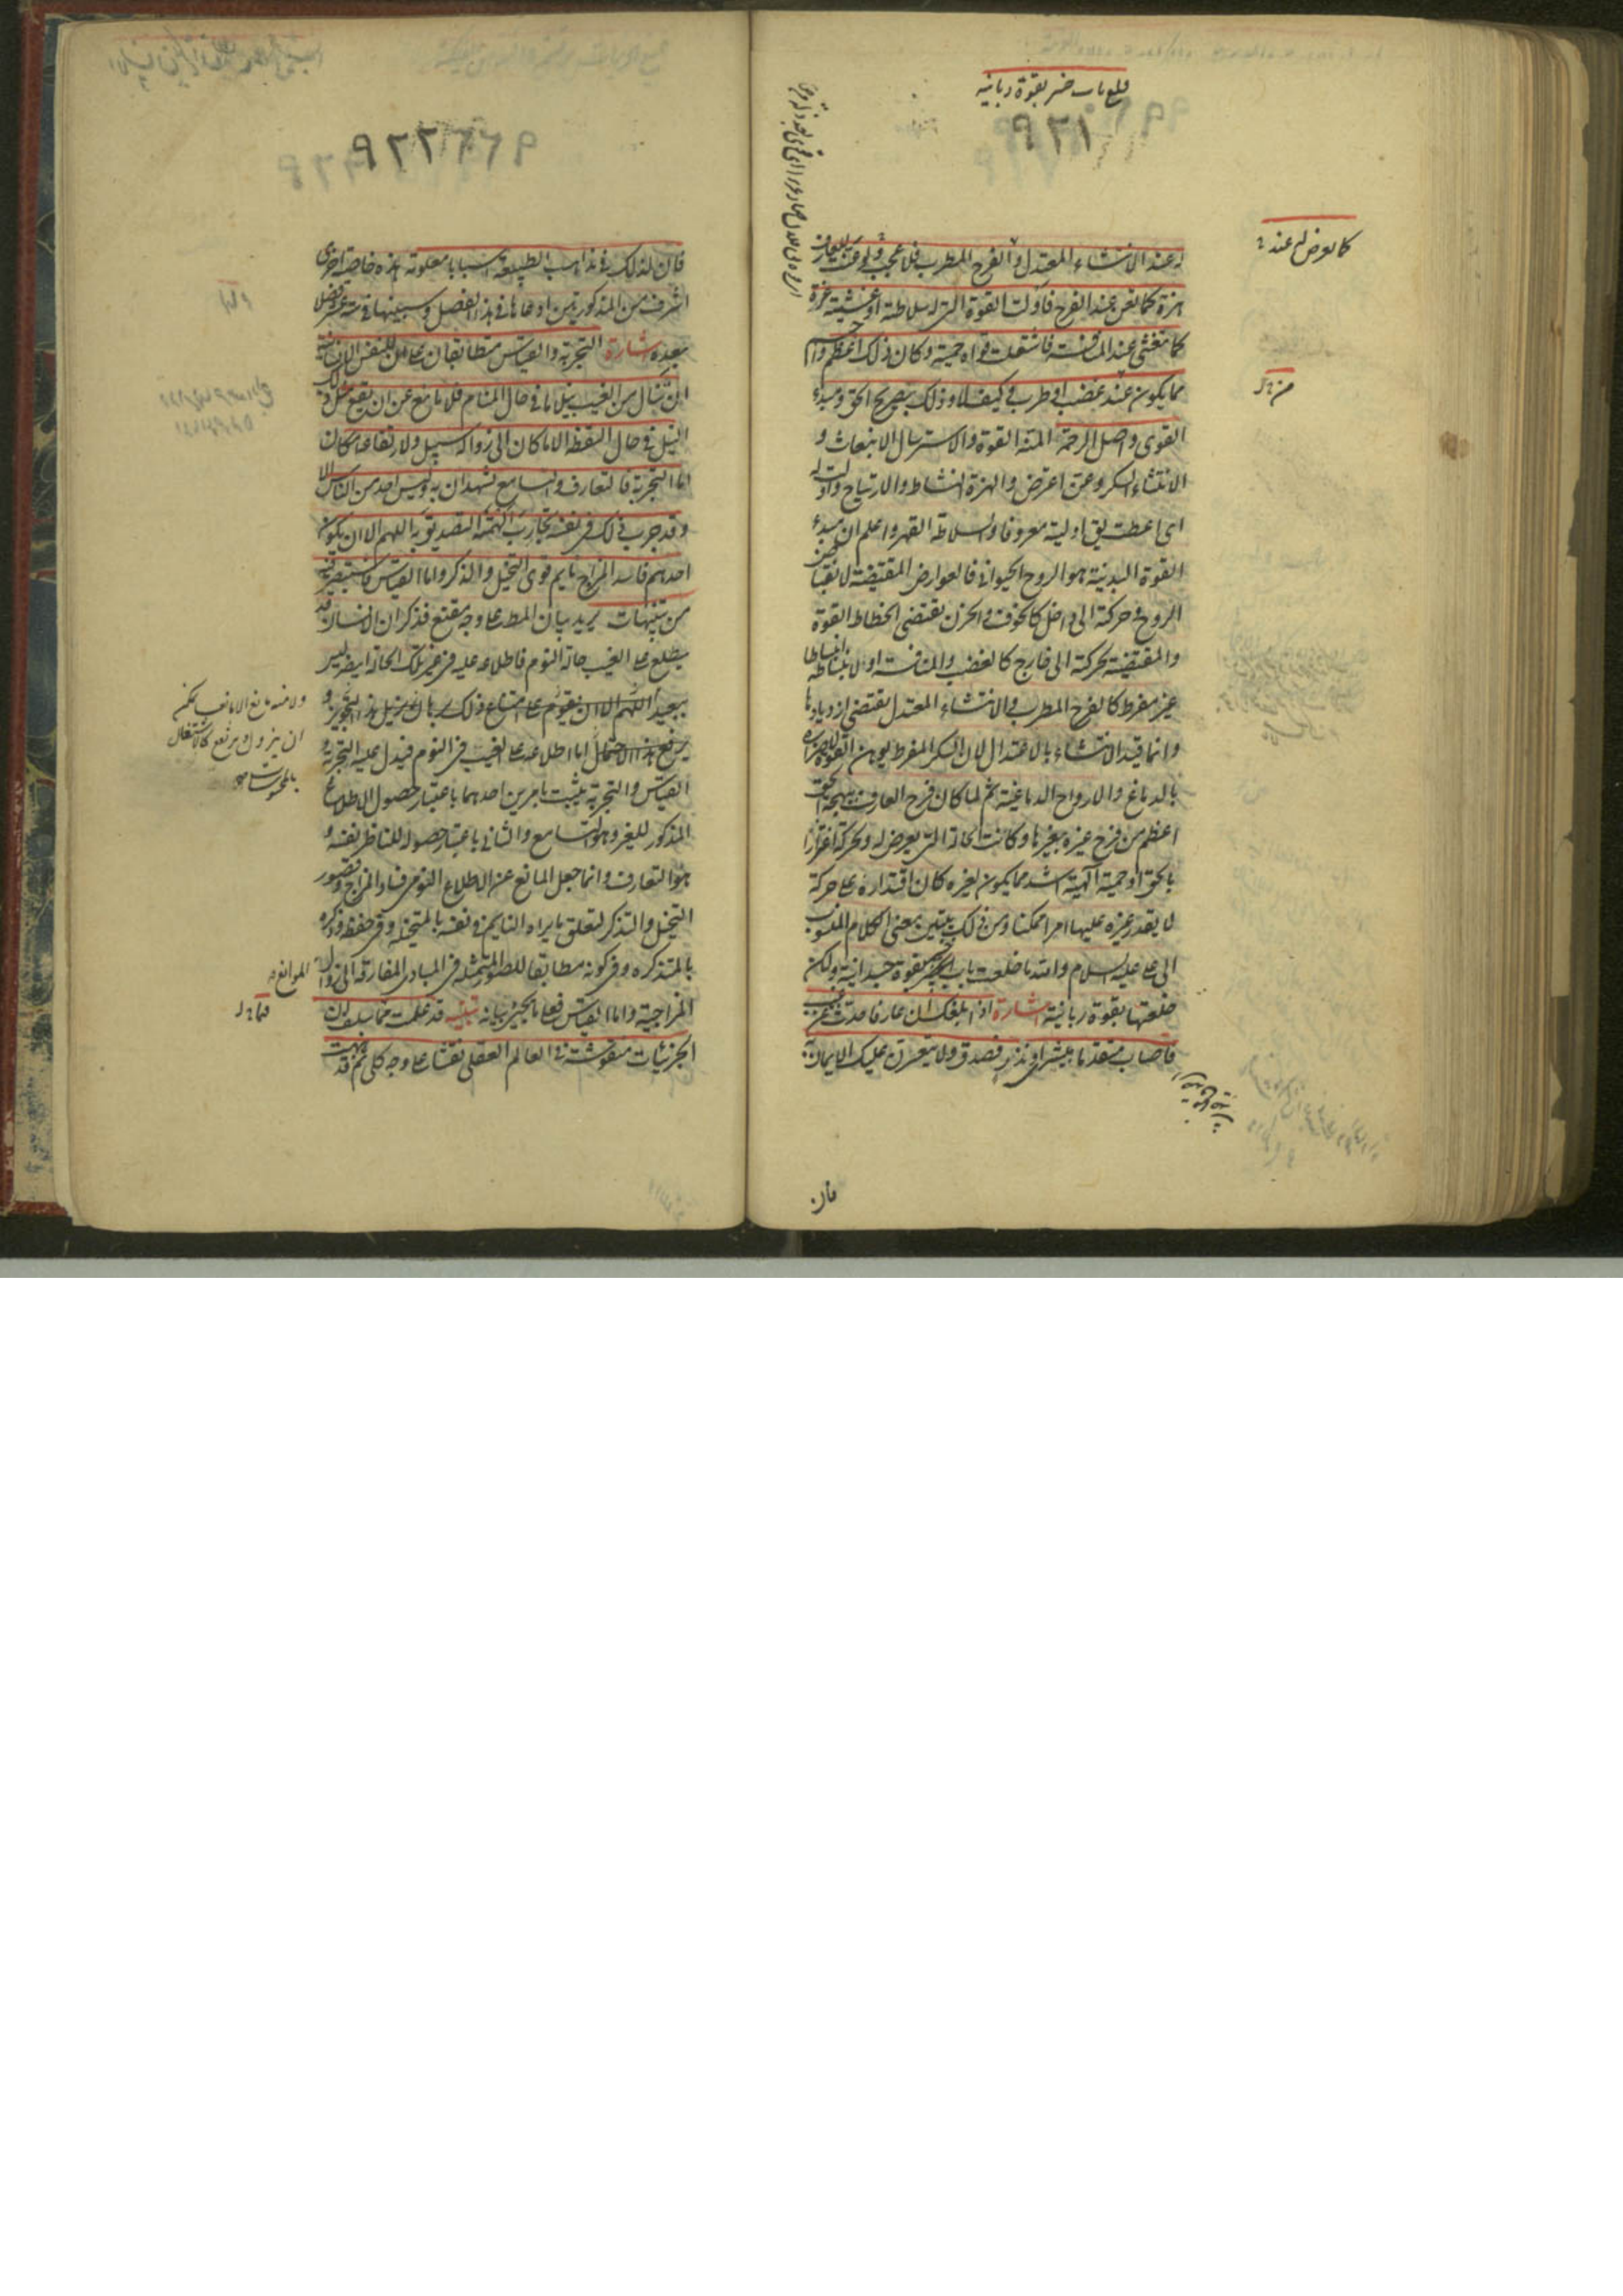 قلع باب خیبر بقوة ربانیه
۹۲۱
کما یعرض له عند
له عند الانتشاء المعتدل و الفرح المطرب فلا عجب لو عنت للعارف
هزة کما یعن عند الفرح فاولت القوة التی له سلاطة او غشیته عزة
کما تغشی عند المنافسة فاشتعلت قواه حمیة و کان ذلک اعظم و اجسم
مما یکون عند غضب او طرب و کیف لا و ذلک بصریح الحق و مبدء
القوی و اصل الرحمة المنة القوة و الاسترسال الانبعاث و
الانتشاء السکر و عن اعترض و الهزة النشاط و الارتیاح و اولت له
ای اعطت یق اولیته معروفا و السلاطة القهر و اعلم ان مبدء
القوة البدنیة هو الروح الحیوانی فالعوارض المقتضیة لانقباض
الروح و حرکته الی داخل کالخوف و الحزن تقتضی انحطاط القوة
و المقتضیة لحرکته الی خارج کالغضب و المنافسة او لانبساطه انبساطا
غیر مفرط کالفرح المطرب و الانتشاء المعتدل تقتضی ازدیادها
و انما قید الانتشاء بالاعتدال لان السکر المفرط یوهن القوة لاضراره
بالدماغ و الارواح الدماغیة ثم لما کان فرح العارف ببهجة الحق
اعظم من فرح غیره بغیرها و کانت الحالة التی یعرض له و تحرکه اعتزازا
بالحق او حمیة الهیة اشد مما یکون لغیره کان اقتداره علی حرکة
لا یقدر غیره علیها امرا ممکنا و من ذلک یتبین معنی الکلام المنسوب
الی علی علیه السلام و الله ما قلعت باب خیبر بقوة جسدانیة و لکن
قلعتها بقوة ربانیة اشارة اذا بلغک ان عارفا حدث عن غیب
فاصاب متقدما ببشری او نذیر فصدق و لا یتعسرن علیک الایمان به
فان
۹۲۲
فان لذلک فی مذاهب الطبیعة اسبابا معلومة هذه خاصة اخری
اشرف من المذکورتین ادعاها فی هذا الفصل و سیبینها فی ستة عشر فصلا
بعده اشارة التجربة و القیاس متطابقان علی ان للنفس الانسانیة
ان تنال من الغیب نیلا ما فی حال المنام فلا مانع عن ان یقع مثل ذلک
النیل فی حال الیقظة الا ما کان الی زواله سبیل و لارتفاعه امکان
اما التجربة فالتعارف و التسامع یشهدان به و لیس احد من الناس الا
و قد جرب ذلک فی نفسه تجارب الهمته التصدیق به اللهم الا ان یکون
احدهم فاسد المزاج نایم قوی التخیل و الذکر و اما القیاس فاستبصر فیه
من تنبیهات یرید بیان المط علی وجه مقنع فذکر ان الانسان قد
یطلع علی الغیب حالة النوم فاطلاعه علیه فی غیر تلک الحالة ایضا لیس
ببعید اللهم الا ان یقوم علی امتناع ذلک برهان یزیل هذا التجویز و
یرفع هذا الاحتمال اما اطلاعه علی الغیب فی النوم فیدل علیه التجربة و
القیاس و التجربة یثبت بامرین احدهما باعتبار حصول الاطلاع
المذکور للغیر و هو التسامع و الثانی باعتبار حصوله للناظر نفسه و
هو التعارف و انما جعل المانع عن الاطلاع النومی فساد المزاج و قصور
التخیل و التذکر لتعلق ما یراه النایم فی نفسه بالمتخیلة و فی حفظه و ذکره
بالمتذکرة و فی کونه مطابقا للصور المتمثلة فی المبادی المفارقة الی زوال الموانع
المزاجیة و اما القیاس فعلی ما یجیء بیانه تنبیه قد علمت مما سلف ان
الجزئیات منقوشة فی العالم العقلی نقشا علی وجه کلی ثم قد نبهت
و لا منه مانع الا مانعا یمکن
ان یزول و یرتفع کالاشتغال
بالمحسوسات